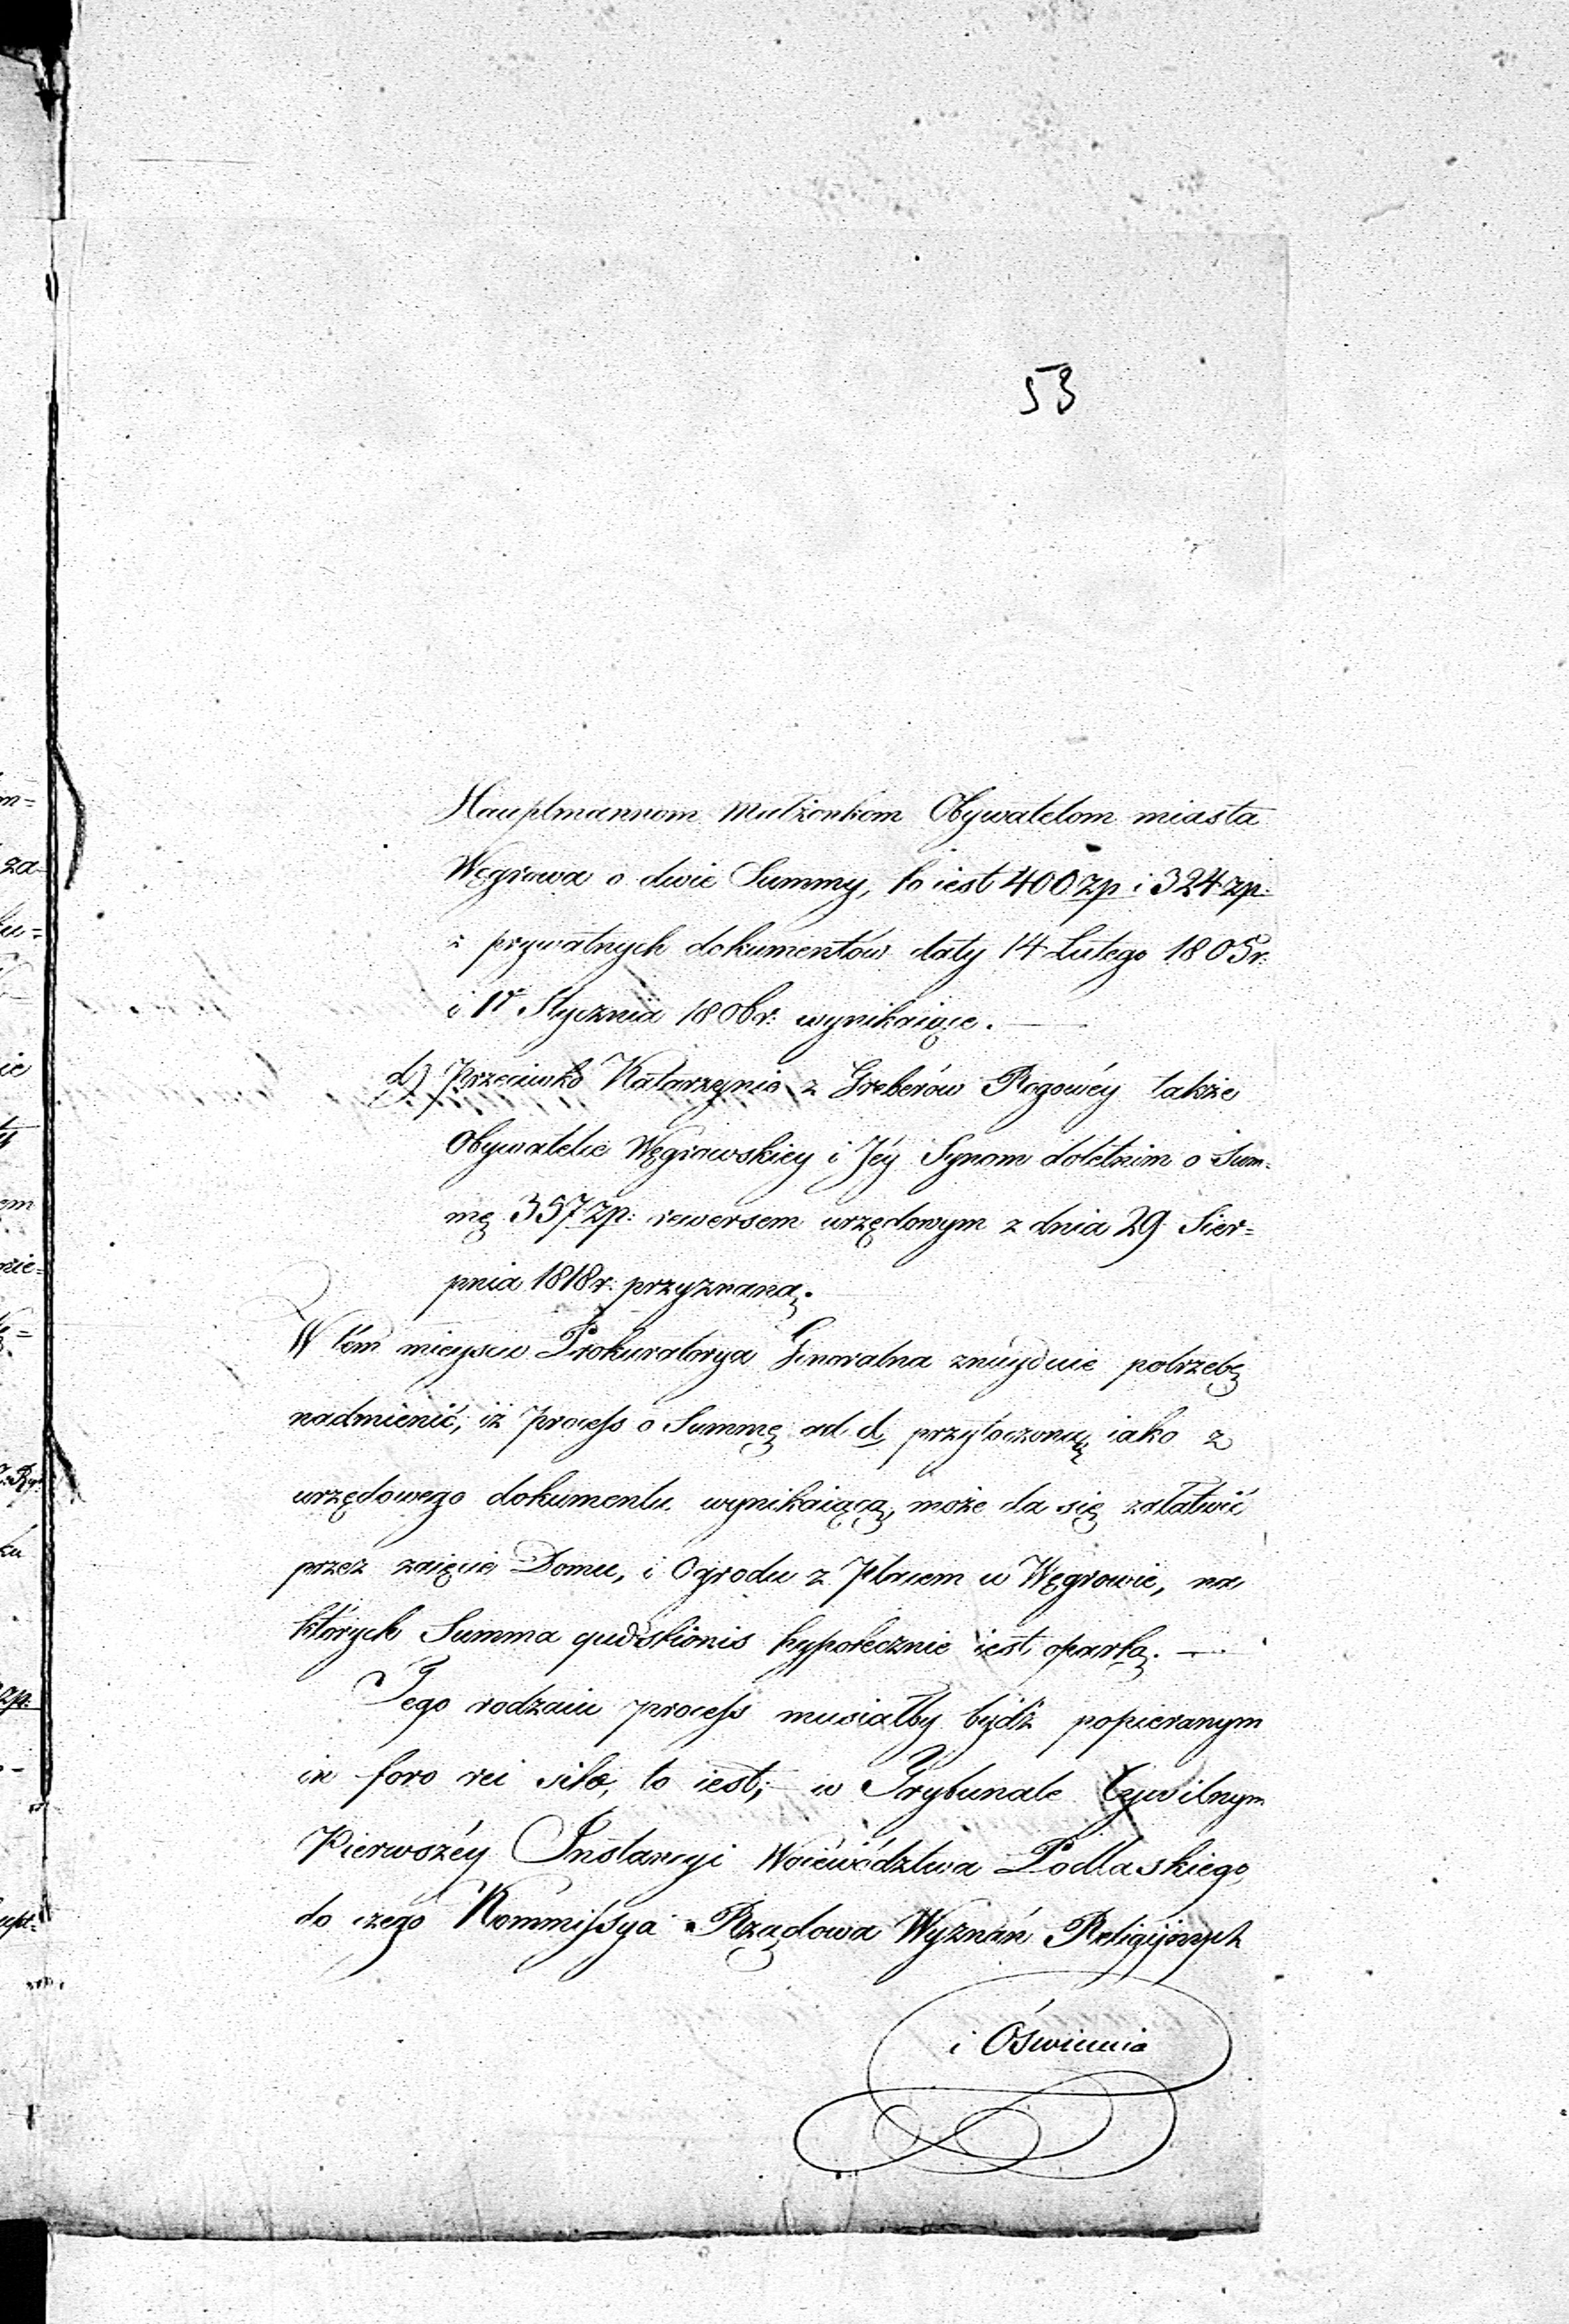 53
Hauptmannom Małżonkom Obywatelom miasta
Węgrowa o dwie Summy, to iest 400 zp i 324 zp:
z prywatnych dokumentów daty 14 Lutego 1805 r:
i Stycznia 1806 r: wynikaiące.
d) Przeciwko Katarzynie z Greberów Rogowéy także
Obywatelce Węgrowskiey i Jéy Synom doletnim o Sum-
mę 357 zp: rewersem urzędowym z dnia 29 Sier-
pnia 1818 r. przyznaną.
W tém mieyscu Prokuratorya Generalna znayduie potrzebę
nadmienić, iż process o Summę ad d, przytoczoną iako z
urzędowego dokumentu wynikaiącą, może da się załatwić
przez zaięcie Domu, i Ogrodu z Placem w Węgrowie, na
których Summa quæstionis hypotecznie iest opartą. —
Tego rodzaiu process musiałby bydź popieranym
in foro rei sitæ, to iest; w Trybunale Cywilnym
Pierwszéy Instancyi Woiewództwa Podlaskiego,
do czego Kommissya Rządowa Wyznań Religijnych
i Oświecenia